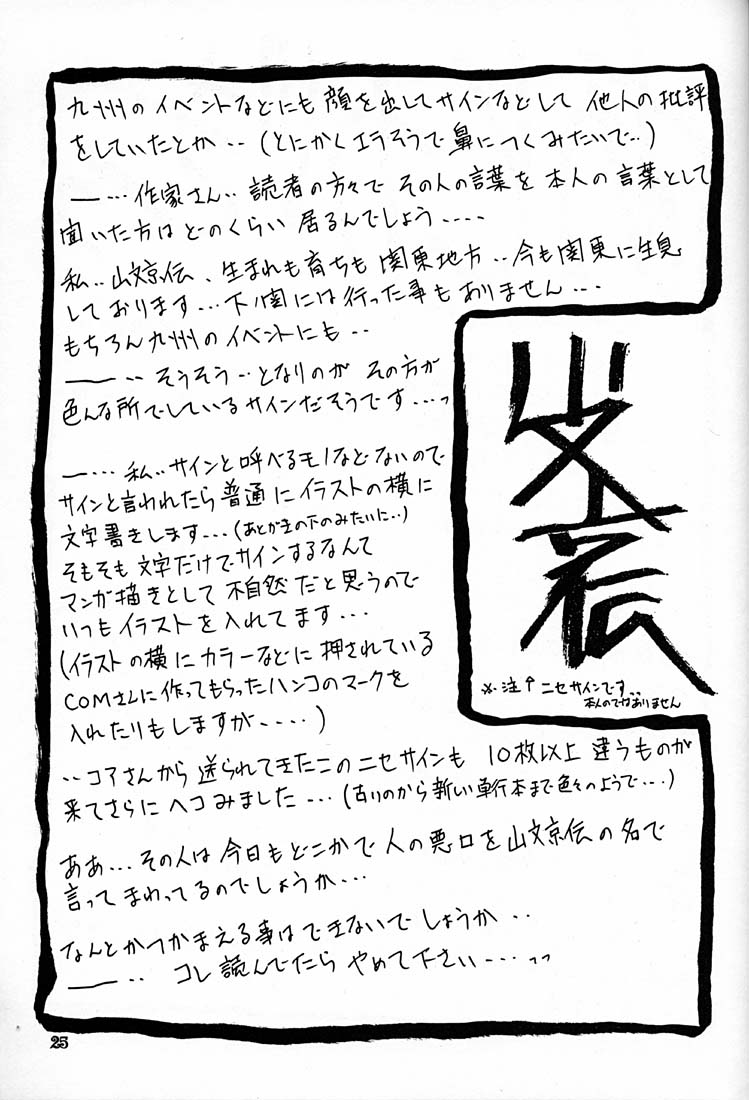 九州のイベントなどにも顔を出してサインなどして 他人の批評
をしていたとか‥(とにかくエラそうで鼻につくみたいで…)
―…作家さん‥読者の方々で その人の言葉を 本人の言葉として
聞いた方はどのくらい 居るんでしょう‥‥
私‥山文京伝、生まれも育ちも 関東地方‥今も関東に生息
しております…下ノ関には行った事もありません…．
もちろん九州のイベントにも‥
―‥そうそう‥となりのが その方が
色んな所でしているサインだそうです…っ
―…私‥サインと呼べるモノなどないので
サインと言われたら普通にイラストの横に
文字書きします…(あとがきの下のみたいに‥)
そもそも文字だけでサインするなんて
マンガ描きとして 不自然だと思うので
いつもイラストを入れてます…
(イラストの横にカラーなどに 押されている
COMさんに作ってもらったハンコのマークを
入れたりもしますが‥‥)
山文京伝
※注↑ニセサインです‥
本人のではありません
‥コアさんから 送られてきたこのニセサインも 10枚以上 違うものが
来てさらに ヘコみました…(古いのから新しい単行本まで色々のようで…)
ああ…その人は今日もどこかで 人の悪口を山文京伝の名で
言って まわってるのでしょうか…
なんとかつかまえる事はできないでしょうか‥
―‥ コレ読んでたら やめて下さい‥‥っっ
25